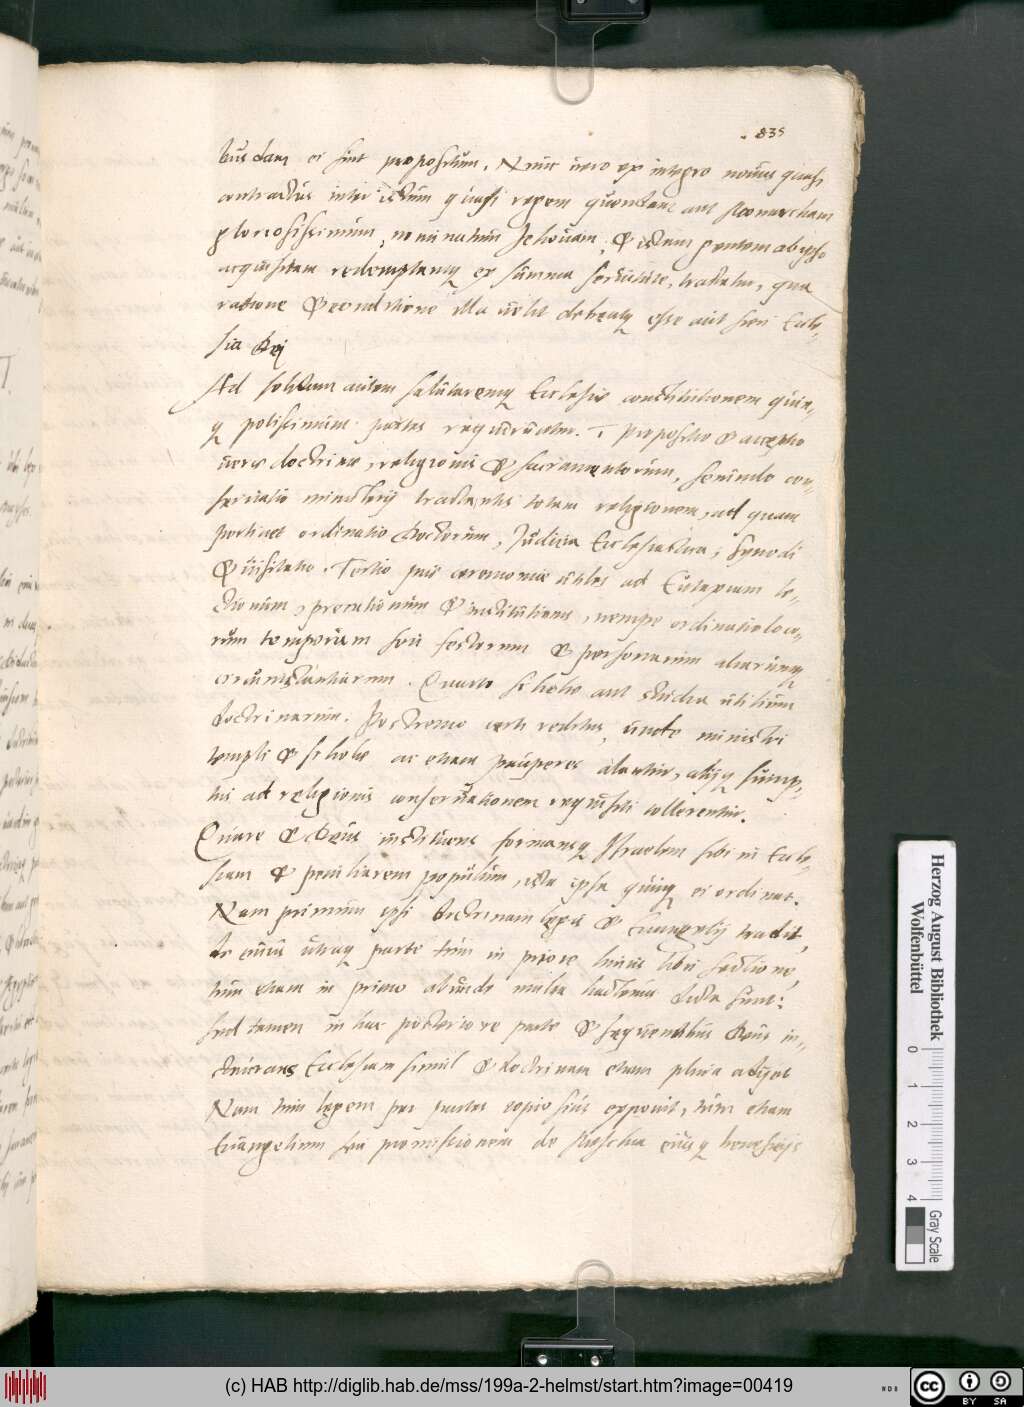 835
busdam ei sint propositum. Nunc vero ex integro novus quasi
contractus inter istum quasi regem quendam aut Monarcham
gloriosissimum, nominatum Jehovam, & istam gentem ab ipso
acquisitam redemptamq ex summa servitute, tractatur, qua
ratione & conditione illa velit debeatq esse aut fieri Eccle-,
sia Dei
Ad solidam autem salutaremq Ecclesiæ constitutionem quin-,
q potissimum partes requiruntur. 1 Propositio & acceptio
veræ doctrinæ, religionis & sacramentorum, secundo con-,
servatio ministerij tractantis totam religionem, ad quam
pertinet ordinatio Doctorum, Judicia Ecclesiastica, Synodi
& visitatio. Tertio piæ ceremoniæ utiles ad Eutaxiam le-,
ctionum, precationum & institutionis, nempe ordinatio loco-,
rum temporum seu festorum & personarum aliarumq
circumstantiarum. Quarto scholæ aut studia utilium
doctrinarum. Postremo certi reditus, unde ministri
templi & scholæ ac etiam pauperes alantur, alijq sump-,
tus ad religionis conservationem requisiti tollerentur.
Quare & Deus instituens formansq Israelem sibi in Eccle-,
siam & peculiarem populum, ista ipsa quinq ei ordinat.
Nam primum ipsi doctrinam legis & Euangelij tradit,
de cuius utraq parte tum in priore huius libri sectione,
tum etiam in primo abunde multa hactenus dicta sunt:
sed tamen in hac posteriore parte & sequentibus Deus in-,
staurans Ecclesiam simul & doctrinam etiam plura adijcit
Nam tum legem per partes copiosius exponit, tum etiam
Euangelium seu promissionem de Messchia eiusq beneficijs
Herzog August Bibliothek
Wolfenbüttel
0 1 2 3 4
Gray Scale
(c) HAB http://diglib.hab.de/mss/199a-2-helmst/start.htm?image=00419
cc BY SA